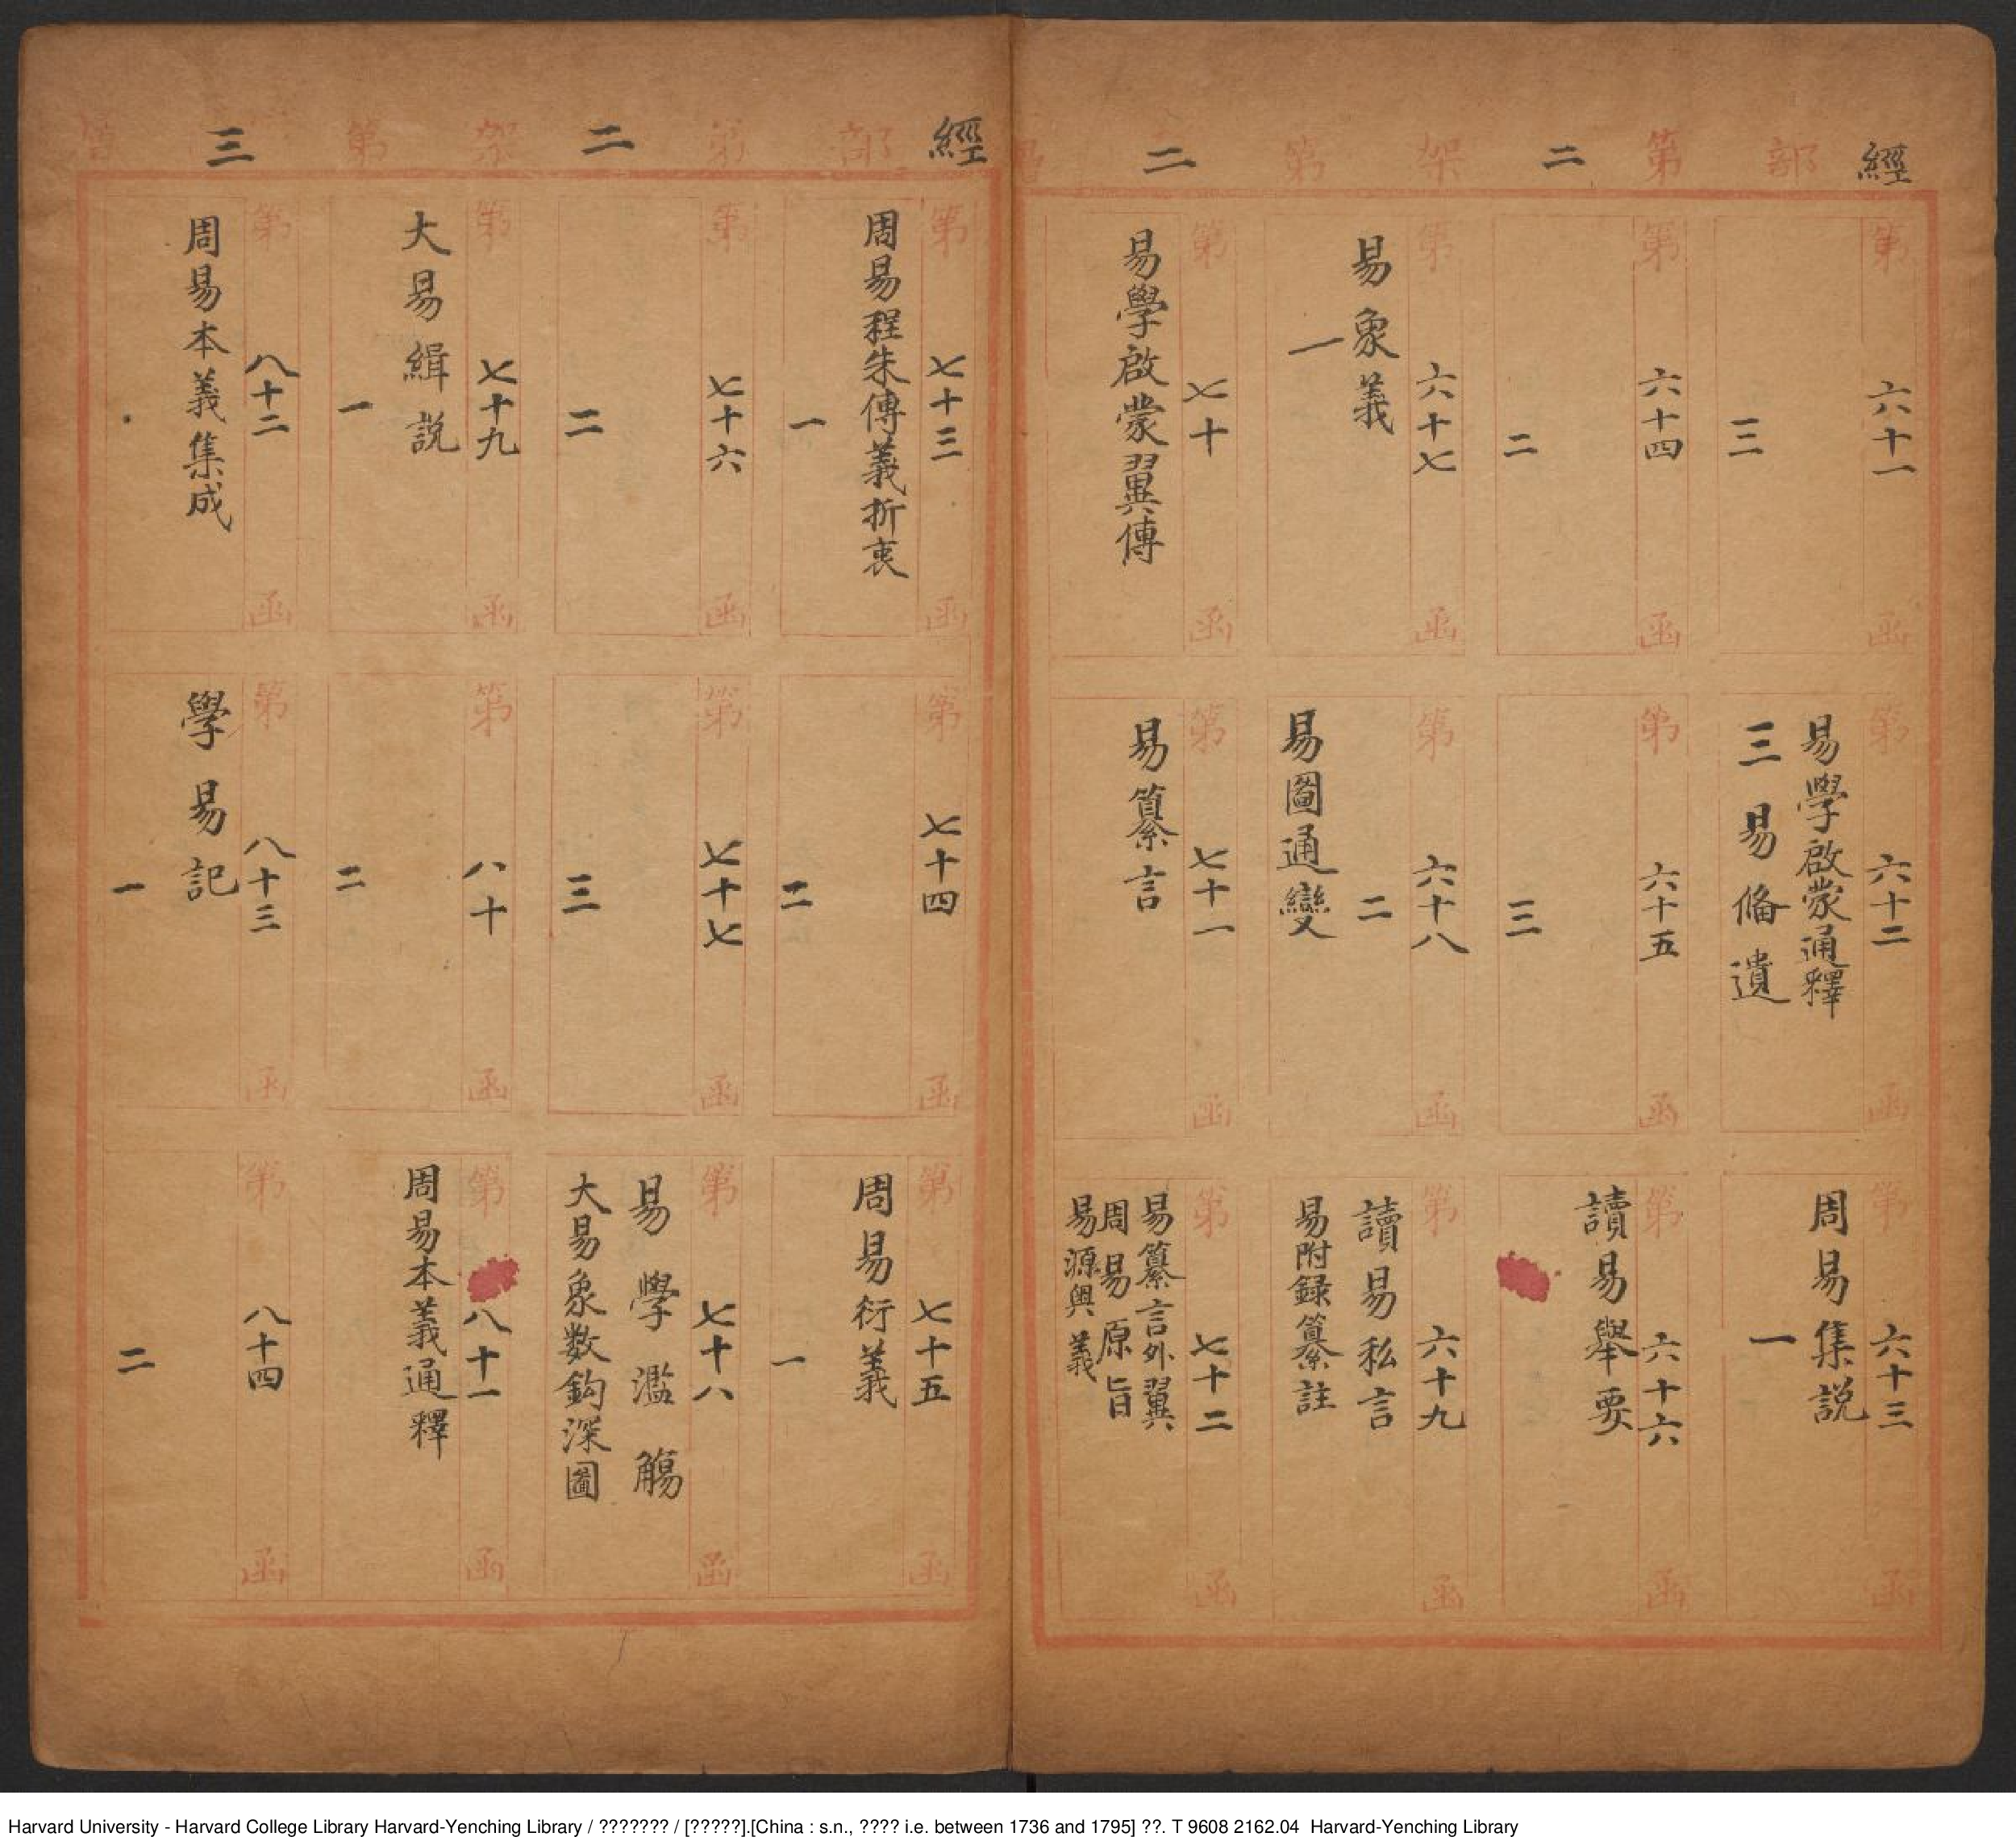 經部第二架第二層
第六十一函
三
第六十二函
易學啟蒙通釋
三易備遺
第六十三函
周易集説
一
第六十四函
二
第六十五函
三
第六十六函
讀易舉要
第六十七函
易象義
一
第六十八函
二
易圖通變
第六十九函
讀易私言
易附録纂註
第七十函
易學啟蒙翼傳
第七十一函
易纂言
第七十二函
易纂言外翼
周易原旨
易源奥義
經部第二架第三層
第七十三函
周易程朱傳義折衷
一
第七十四函
二
第七十五函
周易衍義
一
第七十六函
二
第七十七函
三
第七十八函
易學濫觴
大易象数鈎深圖
第七十九函
大易緝説
一
第八十函
二
第八十一函
周易本義通釋
第八十二函
周易本義集成
第八十三函
學易記
一
第八十四函
二
Harvard University - Harvard College Library Harvard-Yenching Library / ??????? / [?????].[China : s.n., ???? i.e. between 1736 and 1795] ??. T 9608 2162.04 Harvard-Yenching Library